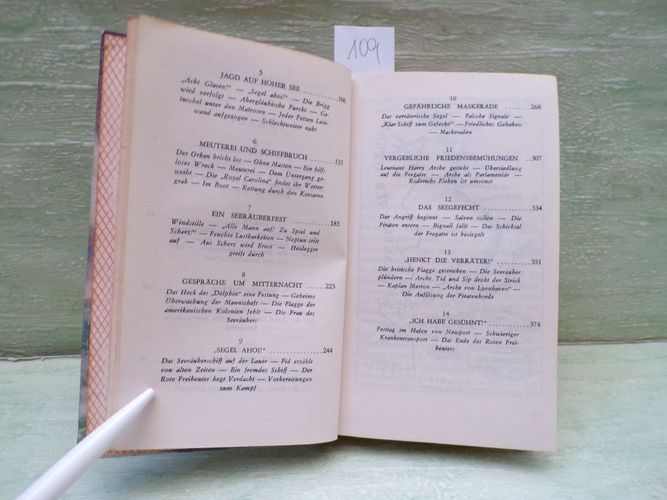 109
5
JAGD AUF HOHER SEE ........ 166
„Acht Glasen!" — „Segel ahoi!" — Die Brigg
wird verfolgt — Abergläubische Furcht — Ge-
tuschel unter den Matrosen — Jeder Fetzen Lein-
wand aufgezogen — Schlechtwetter naht
6
MEUTEREI UND SCHIFFBRUCH ....... 133
Der Orkan bricht los — Ohne Masten — Ein hilf-
loses Wrack — Meuterei — Dem Untergang ge-
weiht — Die „Royal Carolina" findet ihr Wetter-
grab — Im Boot — Rettung durch den Korsaren
7
EIN SEERÄUBERFEST ......... 183
Windstille — „Alle Mann auf! Zu Spiel und
Scherz!" — Feuchte Lustbarkeiten — Neptun tritt
auf — Aus Scherz wird Ernst — Heidegger
greift durch
8
GESPRÄCHE UM MITTERNACHT ....... 223
Das Heck des „Delphin" eine Festung — Geheime
Überwachung der Mannschaft — Die Flagge der
amerikanischen Kolonien fehlt — Die Frau des
Seeräubers
9
„SEGEL AHOI!" ........... 244
Das Seeräuberschiff auf der Lauer — Fid erzählt
von alten Zeiten — Ein fremdes Schiff — Der
Rote Freibeuter hegt Verdacht — Vorbereitungen
zum Kampf
10
GEFÄHRLICHE MASKERADE ......... 268
Das verräterische Segel — Falsche Signale —
„Klar Schiff zum Gefecht!" — Friedliches Gehaben
— Maskeraden
11
VERGEBLICHE FRIEDENSBEMÜHUNGEN ..... 307
Leutnant Harry Arche gesteht — Übersiedlung
auf die Fregatte — Arche als Parlamentär —
Roderichs Flehen ist umsonst
12
DAS SEEGEFECHT ........... 334
Der Angriff beginnt — Salven rollen — Die
Piraten entern — Bignall fällt — Das Schicksal
der Fregatte ist besiegelt
13
„HENKT DIE VERRÄTER!" ......... 351
Die britische Flagge gestrichen — Die Seeräuber
plündern — Arche, Fid und Sip droht der Strick
— Kaplan Merton — „Arche von Lynnhaven" —
Die Auflösung der Piratenhorde
14
„ICH HABE GESÜHNT!" ......... 374
Festtag im Hafen von Newport — Schwieriger
Krankentransport — Das Ende des Roten Frei-
beuters